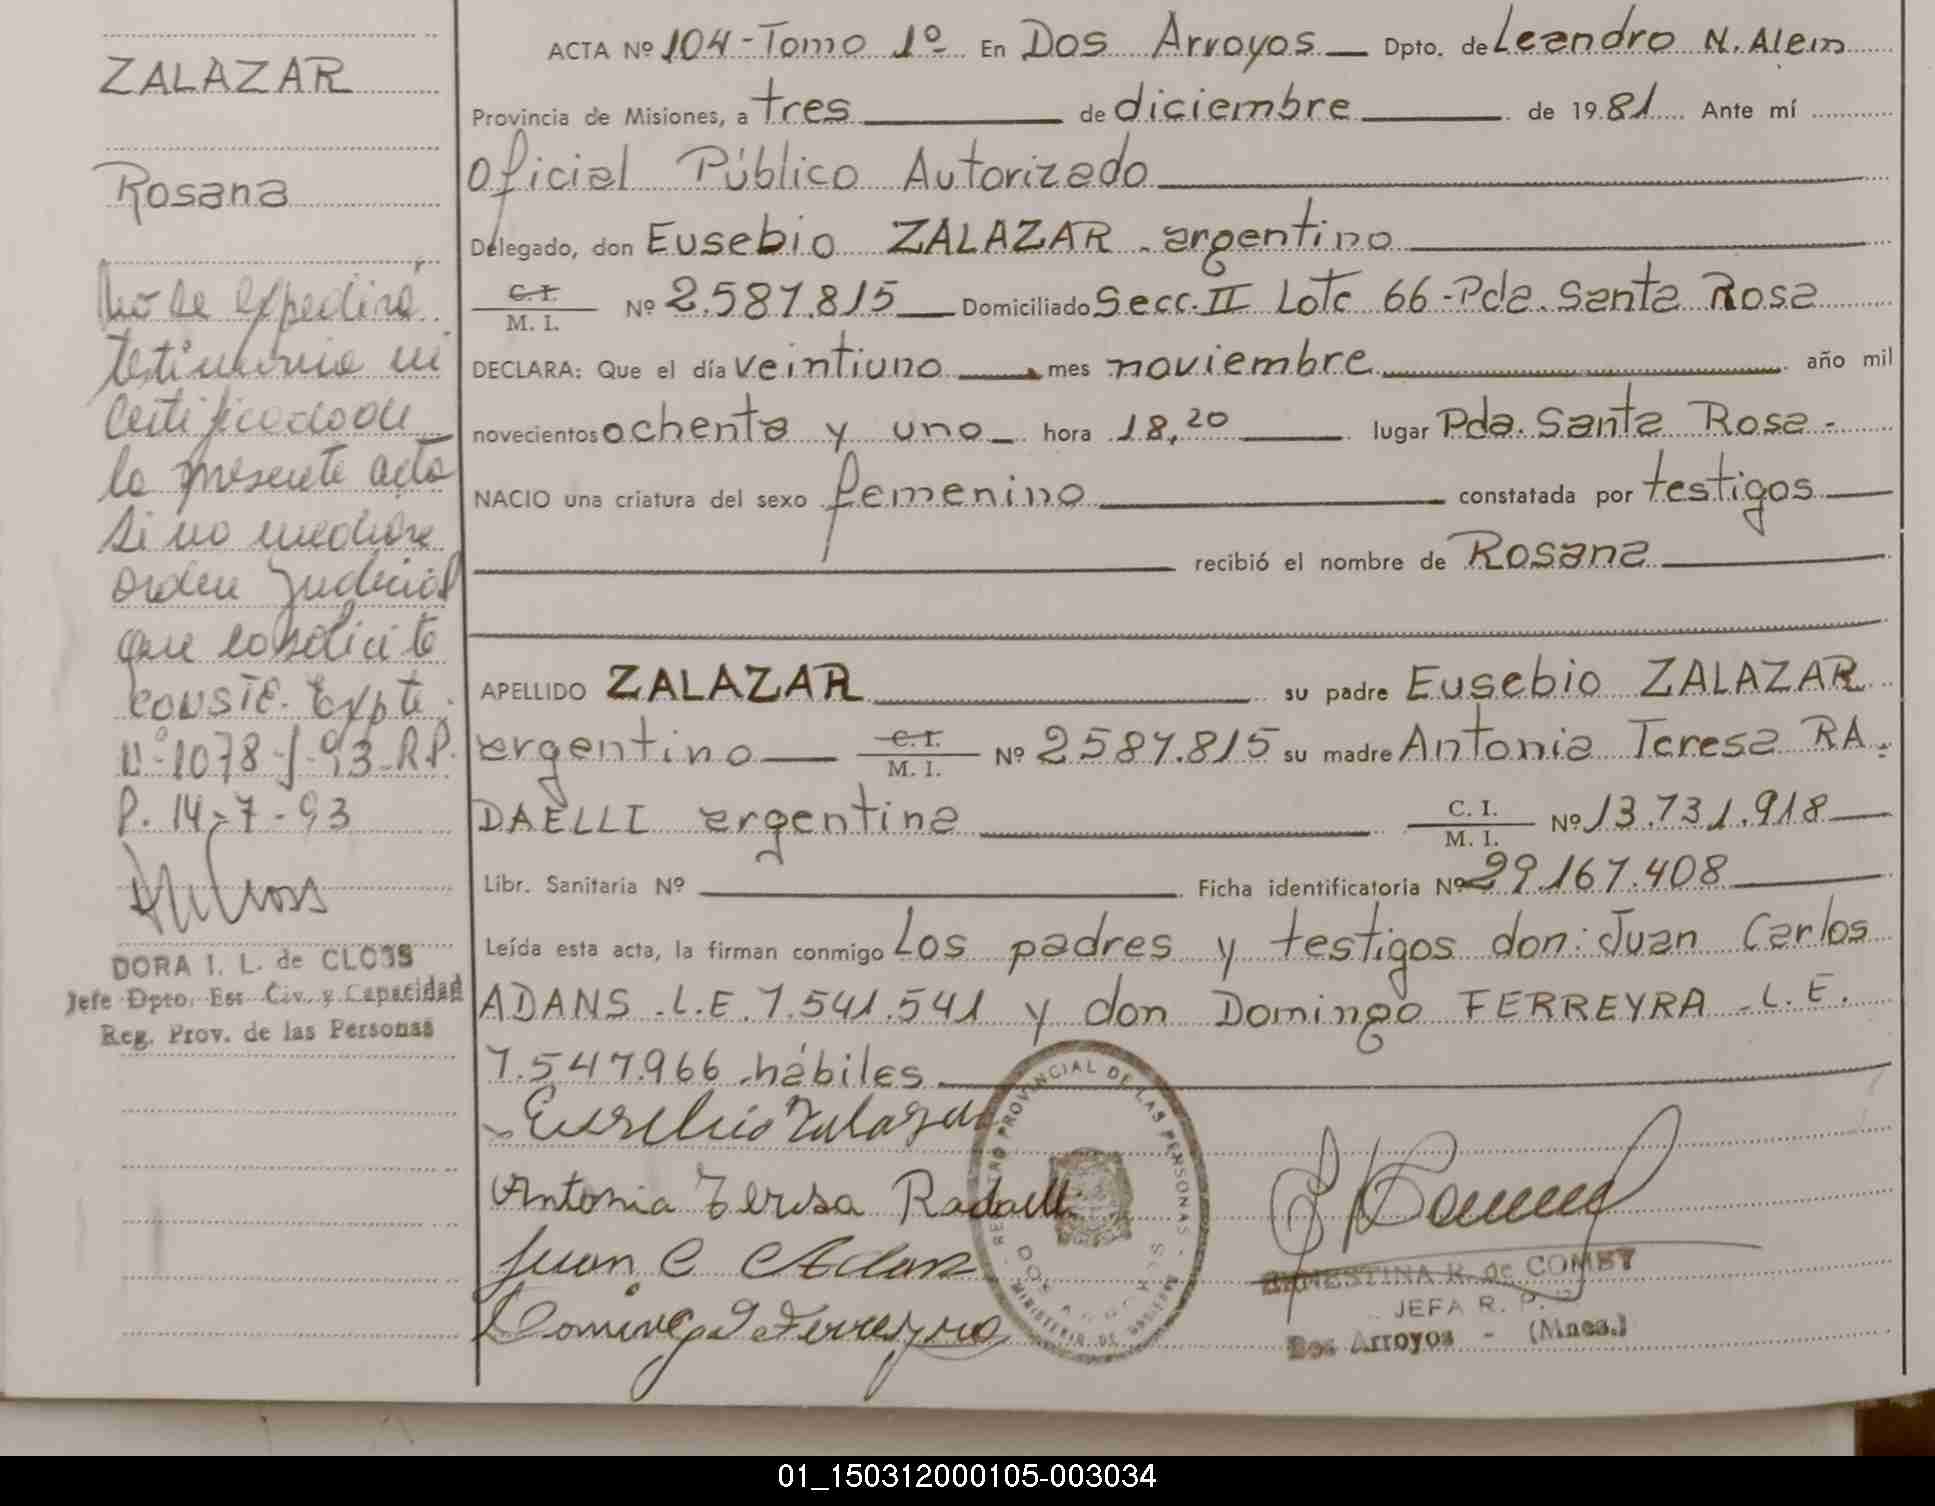 ZALAZAR
Rosana
No se expedirá
testimonio ni
certificado de
la presente acta
si no mediare
orden judicial
que lo solicite
CONSTE. Expte.
Nº 1078-J-93-R.P.
P. 14-7-93
DORA I. L. de CLOSS
Jefe Dpto. Est. Civ. y Capacidad
Reg. Prov. de las Personas
ACTA Nº 104-Tomo 1º En Dos Arroyos Dpto. de Leandro N. Alem
Provincia de Misiones, a tres de diciembre de 1981 Ante mí
Oficial Público Autorizado
Delegado, don Eusebio ZALAZAR - argentino
C. I.
M. I. Nº 2.587.815 Domiciliado Secc. II Lote 66-Pda. Santa Rosa
DECLARA: Que el día veintiuno mes noviembre año mil
novecientos ochenta y uno hora 18,20 lugar Pda. Santa Rosa-
NACIO una criatura del sexo femenino constatada por testigos
recibió el nombre de Rosana
APELLIDO ZALAZAR su padre Eusebio ZALAZAR
argentino C. I.
M. I. Nº 2587.815 su madre Antonia Teresa RA-
DAELLI argentina C. I.
M. I. Nº 13.731.918
Libr. Sanitaria Nº Ficha identificatoria Nº 29.167.408
Leída esta acta, la firman conmigo Los padres y testigos don: Juan Carlos
ADANS -L.E. 7.541.541 y don Domingo FERREYRA -L.E.
7.547.966 -hábiles
Eusebio Zalazar
Antonia Teresa Radaelli
Juan C Adans
Domingo Ferreyra
REGISTRO PROVINCIAL DE LAS PERSONAS -
DOS ARROYOS
MINISTERIO DE GOBIERNO
ERNESTINA R. de COMBY
JEFA R. P.
Dos Arroyos - (Mnes.)
01_150312000105-003034